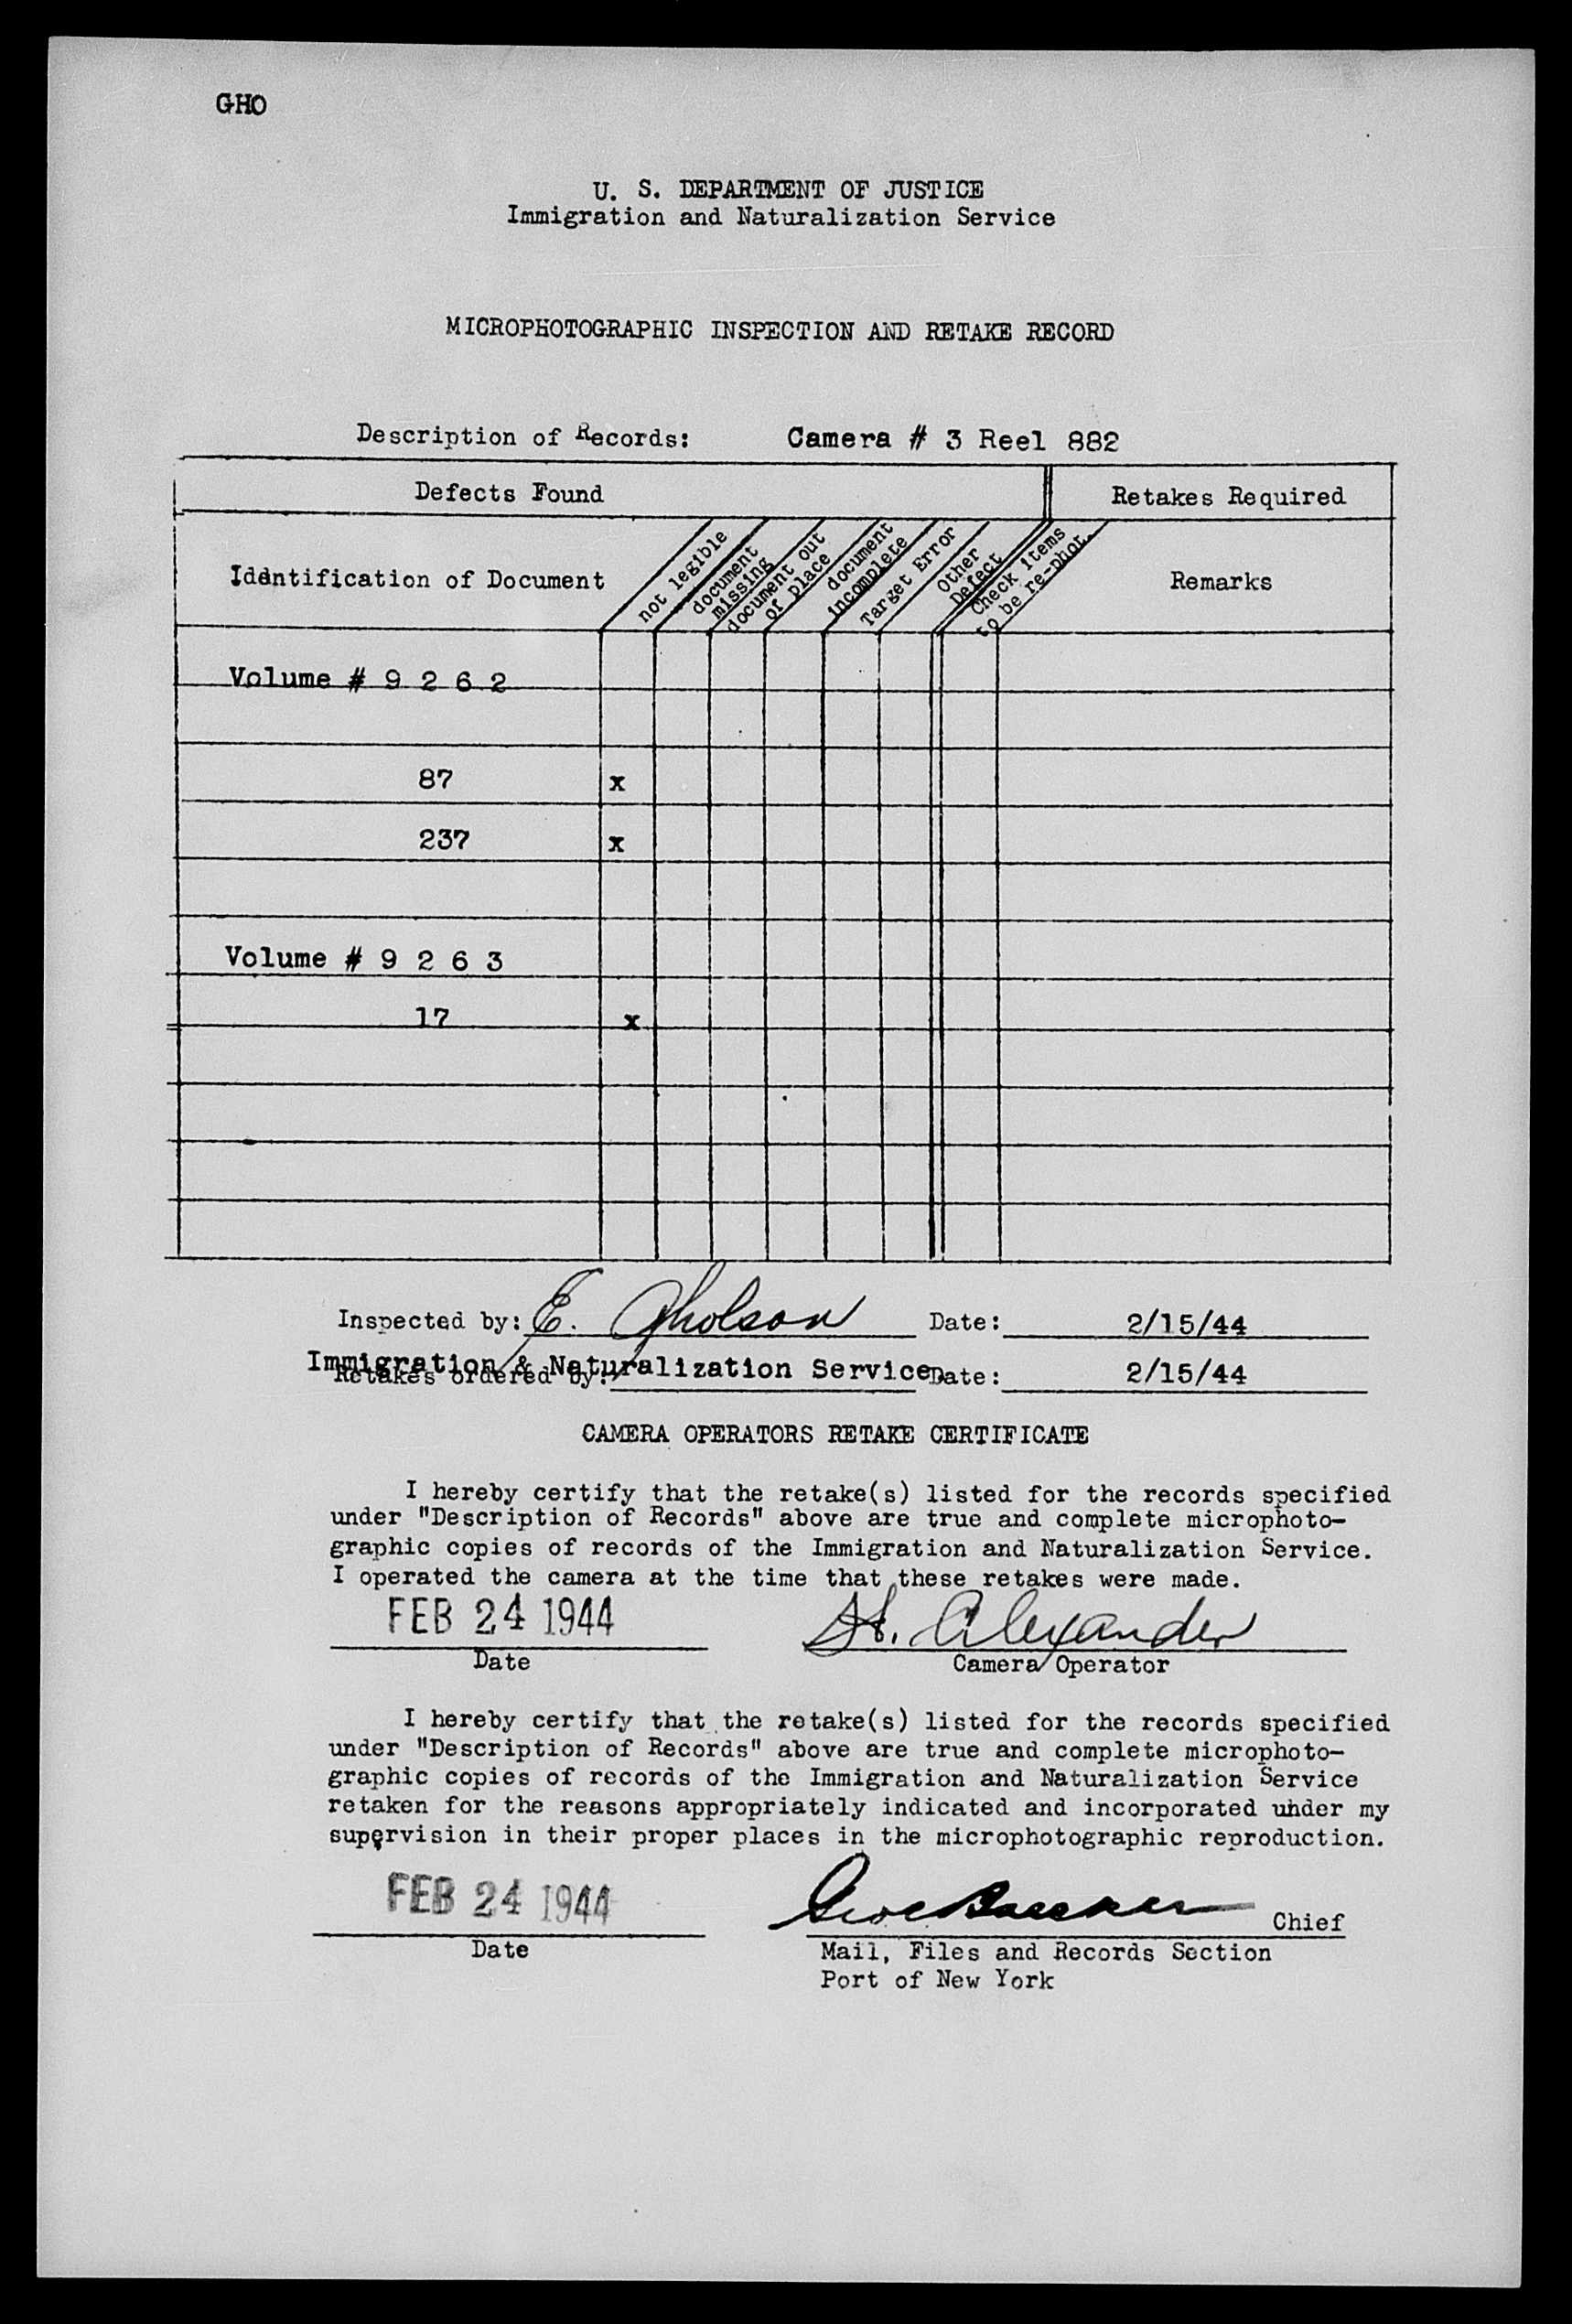 GHO
U. S. DEPARTMENT OF JUSTICE
Immigration and Naturalization Service
MICROPHOTOGRAPHIC INSPECTION AND RETAKE RECORD
Description of Records: Camera # 3 Reel 882
Defects Found Retakes Required
Identification of Document
not legible
document missing
document out of place
document incomplete
Target Error
Other Defect
Check items to be re-phot.
Remarks
Volume # 9 2 6 2
87 x
237 x
Volume # 9 2 6 3
17 x
Inspected by: E. Gholson Date: 2/15/44
Immigration & Naturalization Service
Retakes ordered by: Date: 2/15/44
CAMERA OPERATORS RETAKE CERTIFICATE
I hereby certify that the retake(s) listed for the records specified
under "Description of Records" above are true and complete microphoto-
graphic copies of records of the Immigration and Naturalization Service.
I operated the camera at the time that these retakes were made.
FEB 24 1944 H. Alexander
Date Camera Operator
I hereby certify that the retake(s) listed for the records specified
under "Description of Records" above are true and complete microphoto-
graphic copies of records of the Immigration and Naturalization Service
retaken for the reasons appropriately indicated and incorporated under my
supervision in their proper places in the microphotographic reproduction.
FEB 24 1944 Chief
Date Mail, Files and Records Section
Port of New York